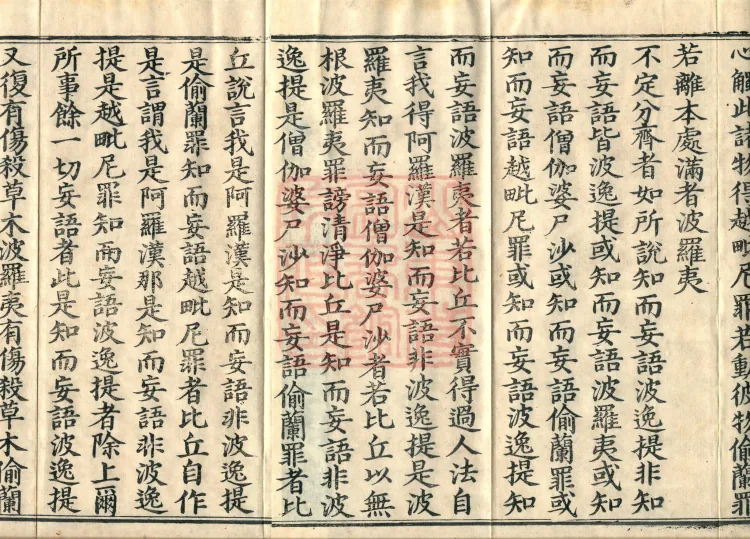 心觸此諸物得越毗尼罪若動彼物偷蘭罪
若離本處滿者波羅夷
不定分齊者如所說知而妄語波逸提非知
而妄語皆波逸提或知而妄語波羅夷或知
而妄語僧伽婆尸沙或知而妄語偷蘭罪或
知而妄語越毗尼罪或知而妄語波逸提知
而妄語波羅夷者若比丘不實得過人法自
言我得阿羅漢是知而妄語非波逸提是波
羅夷知而妄語僧伽婆尸沙者若比丘以無
根波羅夷罪謗清淨比丘是知而妄語非波
逸提是僧伽婆尸沙知而妄語偷蘭罪者比
丘說言我是阿羅漢是知而妄語非波逸提
是偷蘭罪知而妄語越毗尼罪者比丘自作
是言謂我是阿羅漢那是知而妄語非波逸
提是越毗尼罪知而妄語波逸提者除上爾
所事餘一切妄語者此是知而妄語波逸提
又復有傷殺草木波羅夷有傷殺草木偷蘭